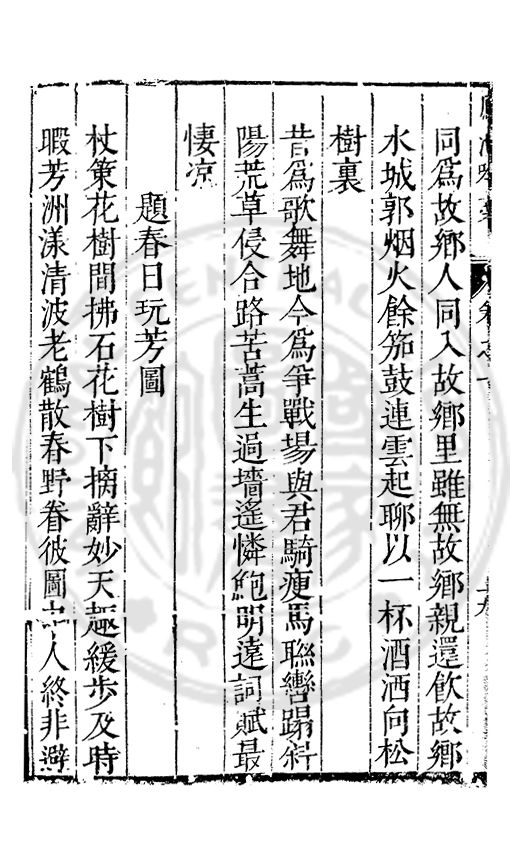 同爲故鄉人同入故鄉里雖無故鄉親還飲故鄉
水城郭烟火餘笳鼓連雲起聊以一杯酒洒向松
樹裏
昔爲歌舞地今爲爭戰場與君騎瘦馬聯轡蹋斜
陽荒草侵合路苦蒿生過墻遙憐鮑明遠詞賦最
悽凉
題春日玩芳圖
杖策花樹間拂石花樹下摛辭妙天趣緩步及時
暇芳洲漾清波老鶴散春野眷彼圖中人終非避